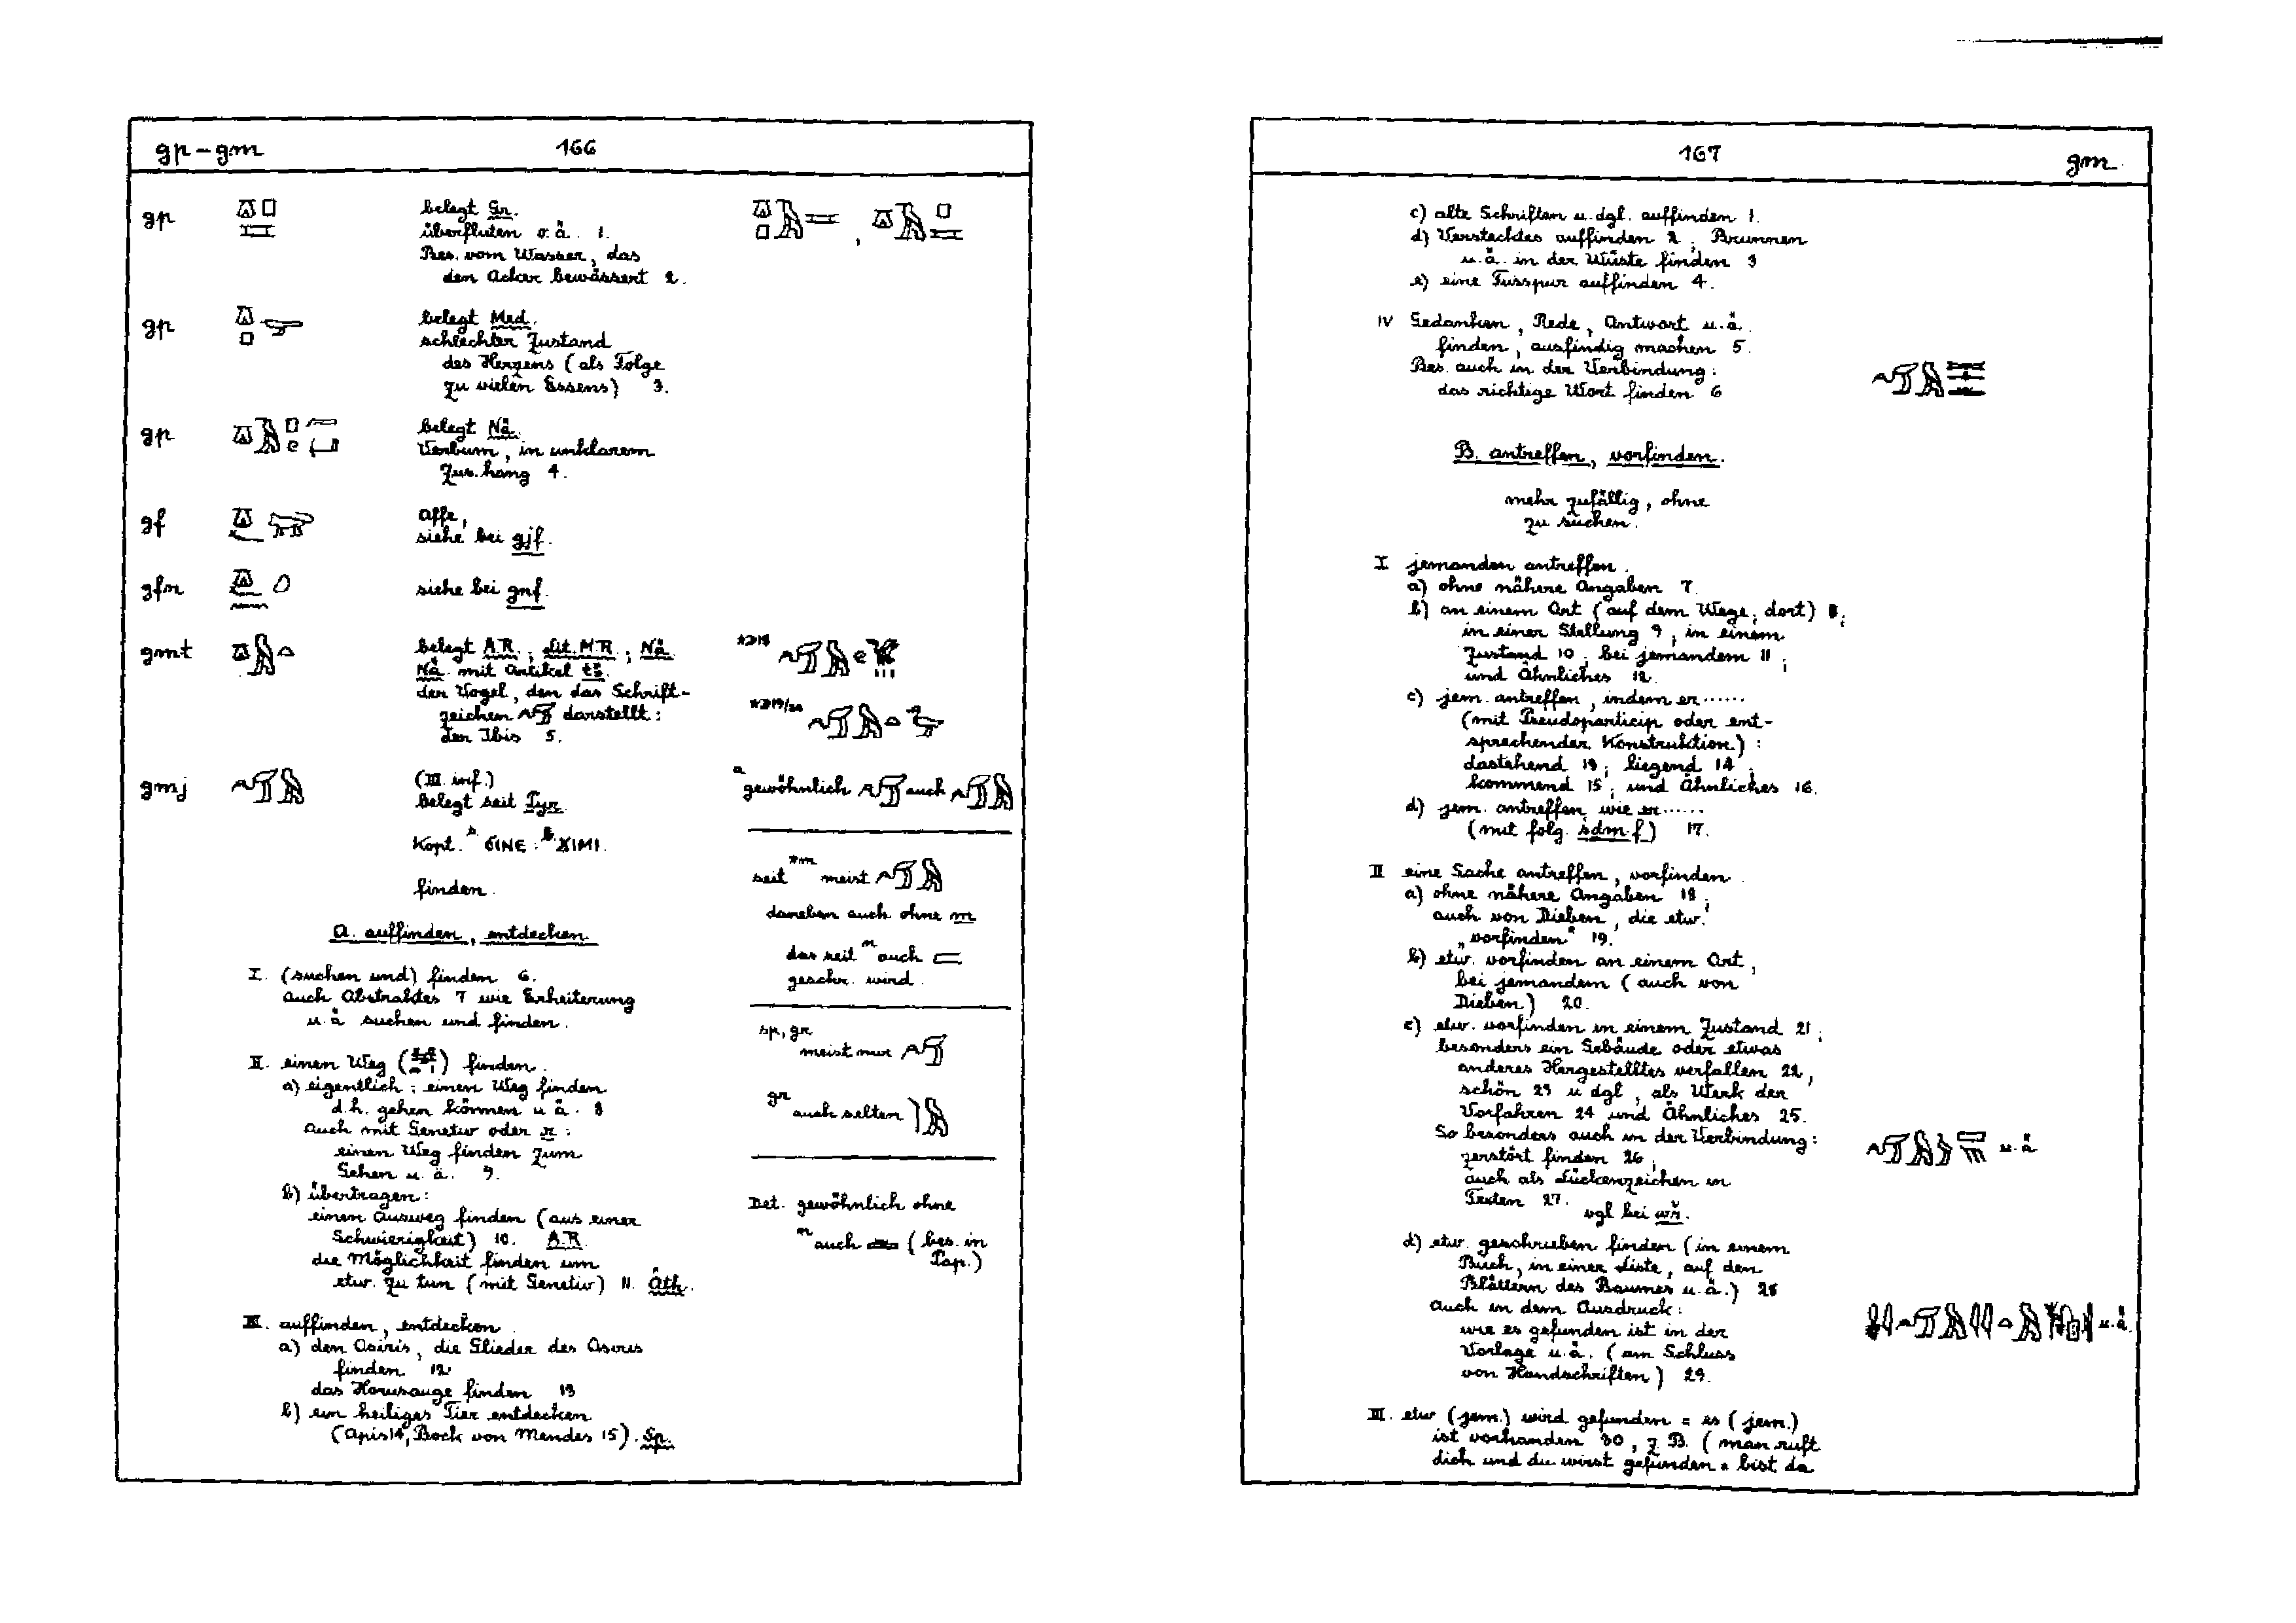 gp – gm 166
gp belegt Gr.
überfluten o. ä. 1.
Bes. vom Wasser, das
den Acker bewässert 2.
gp belegt Med.
schlechter Zustand
des Herzens (als Folge
zu vielen Essens) 3.
gp belegt Nä.
Verbum, in unklarem
Zus.hang 4.
gf Affe,
siehe bei gjf.
gfn siehe bei gnf.
gmt belegt A.R.; Lit. M.R.; Nä.
Nä. mit Artikel tꜣ.
der Vogel, den das Schrift-
zeichen darstellt:
den Ibis 5.
*D18
*D19/20
gmj (III. inf.)
belegt seit Pyr.
Kopt. ϬΙΝΕ : ϪΙΜΙ.
finden.
A. auffinden, entdecken
I. (suchen und) finden 6.
auch Abstraktes 7 wie Erheiterung
u. ä. suchen und finden.
II. einen Weg ( ) finden.
a) eigentlich: einen Weg finden
d.h. gehen können u. ä. 8
Auch mit Genetiv oder r:
einen Weg finden zum
Gehen u. ä. 9.
b) übertragen:
einen Ausweg finden (aus einer
Schwierigkeit) 10. A.R.
die Möglichkeit finden um
etw. zu tun (mit Genetiv) 11. Äth.
III. auffinden, entdecken
a) den Osiris, die Glieder des Osiris
finden 12
das Horusauge finden 13
b) ein heiliges Tier entdecken
(Apis 14, Bock von Mendes 15). Sp.
a gewöhnlich auch
seit *m meist
daneben auch ohne m
das seit n auch
geschr. wird.
sp, gr
meist nur
gr
auch selten
Det. gewöhnlich ohne
n auch (bes. in
Pap.)
167 gm.
c) alte Schriften u. dgl. auffinden 1.
d) Verstecktes auffinden 2; Brunnen
u. ä. in der Wüste finden 3
e) eine Fusspur auffinden 4.
IV Gedanken, Rede, Antwort u. ä.
finden, ausfindig machen 5.
Bes. auch in der Verbindung:
das richtige Wort finden 6
B. antreffen, vorfinden.
mehr zufällig, ohne
zu suchen.
I jemanden antreffen.
a) ohne nähere Angaben 7.
b) an einem Ort (auf dem Wege; dort) 8;
in einer Stellung 9; in einem
Zustand 10; bei jemandem 11;
und Ähnliches 12.
c) jem. antreffen, indem er ......
(mit Pseudoparticip oder ent-
sprechender Konstruktion):
dastehend 13; liegend 14;
kommend 15; und Ähnliches 16.
d) jem. antreffen, wie er ......
(mit folg. sdm.f) 17.
II eine Sache antreffen, vorfinden.
a) ohne nähere Angaben 18;
auch von Dieben, die etw.
„vorfinden" 19.
b) etw. vorfinden an einem Ort,
bei jemandem (auch von
Dieben) 20.
c) etw. vorfinden in einem Zustand 21;
besonders ein Gebäude oder etwas
anderes Hergestelltes verfallen 22,
schön 23 u dgl, als Werk der
Vorfahren 24 und Ähnliches 25.
So besonders auch in der Verbindung: u. ä.
zerstört finden 26;
auch als Lückenzeichen in
Texten 27.
vgl bei wš.
d) etw. geschrieben finden (in einem
Buch, in einer Liste, auf den
Blättern des Baumes u. ä.) 28
Auch in dem Ausdruck:
wie es gefunden ist in der u. ä.
Vorlage u. ä. (am Schluss
von Handschriften) 29.
III. etw (jem.) wird gefunden = es (jem.)
ist vorhanden 30, z. B. (man ruft
dich und du wirst gefunden = bist da